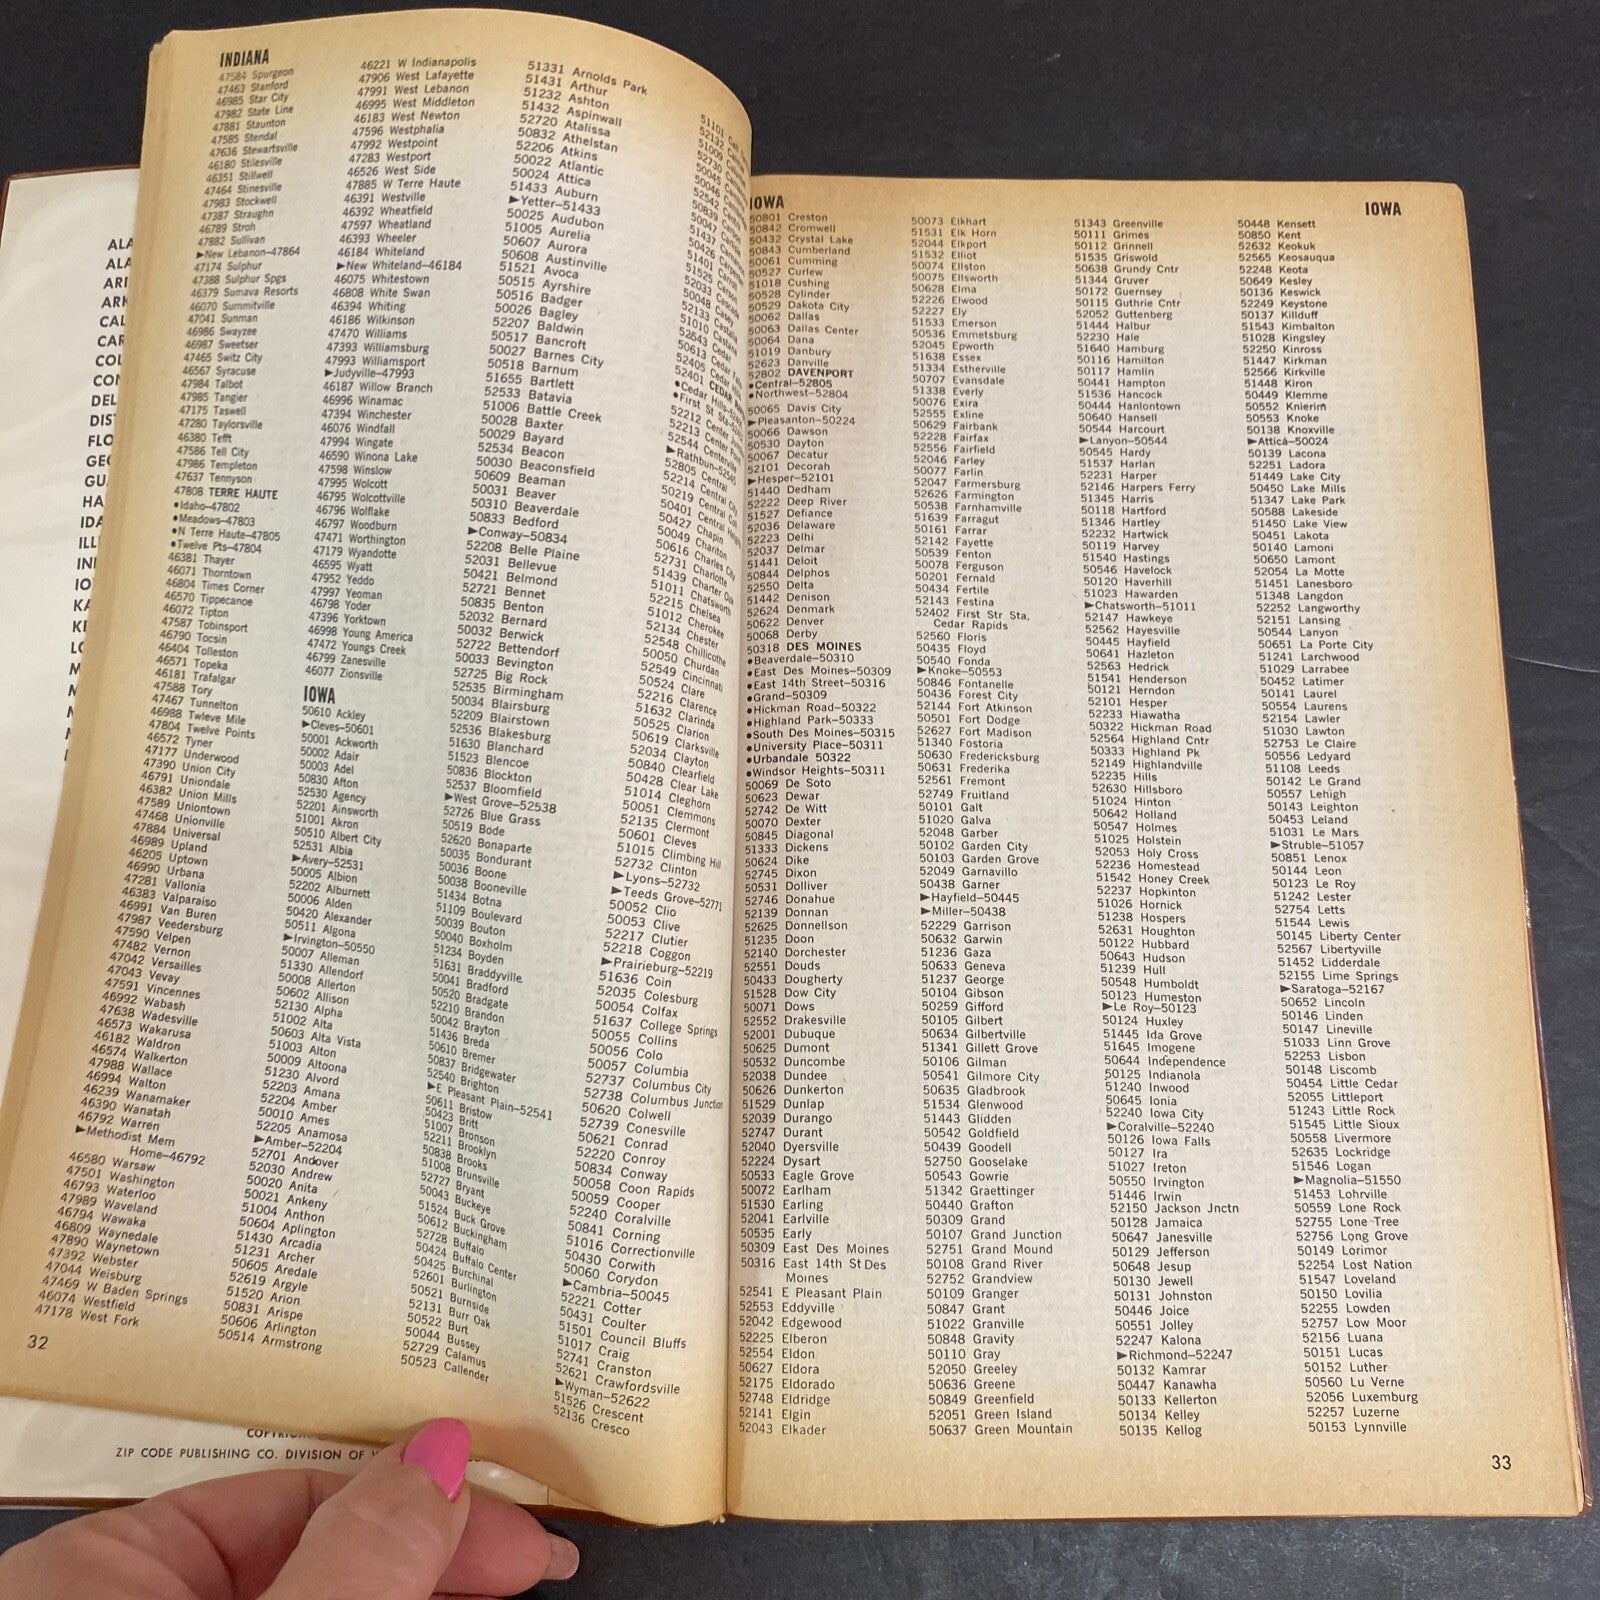 INDIANA
47584 Spurgeon
47463 Stanford
46985 Star City
47982 State Line
47881 Staunton
47585 Stendal
47636 Stewartsville
46180 Stilesville
46351 Stillwell
47464 Stinesville
47983 Stockwell
47387 Straughn
46789 Stroh
47882 Sullivan
►New Lebanon—47864
47174 Sulphur
47388 Sulphur Spgs
46379 Sumava Resorts
46070 Summitville
47041 Sunman
46986 Swayzee
46987 Sweetser
47465 Switz City
46567 Syracuse
47984 Talbot
47985 Tangier
47175 Taswell
47280 Taylorsville
46380 Tefft
47586 Tell City
47986 Templeton
47637 Tennyson
47808 TERRE HAUTE
•Idaho—47802
•Meadows—47803
•N Terre Haute—47805
•Twelve Pts—47804
46381 Thayer
46071 Thorntown
46804 Times Corner
46570 Tippecanoe
46072 Tipton
47587 Tobinsport
46790 Tocsin
46404 Tolleston
46571 Topeka
46181 Trafalgar
47588 Tory
47467 Tunnelton
46988 Twleve Mile
47804 Twelve Points
46572 Tyner
47177 Underwood
47390 Union City
46791 Uniondale
46382 Union Mills
47589 Uniontown
47468 Unionville
47884 Universal
46989 Upland
46205 Uptown
46990 Urbana
47281 Vallonia
46383 Valparaiso
46991 Van Buren
47987 Veedersburg
47590 Velpen
47482 Vernon
47042 Versailles
47043 Vevay
47591 Vincennes
46992 Wabash
47638 Wadesville
46573 Wakarusa
46182 Waldron
46574 Walkerton
47988 Wallace
46994 Walton
46239 Wanamaker
46390 Wanatah
46792 Warren
►Methodist Mem
Home—46792
46580 Warsaw
47501 Washington
46793 Waterloo
47989 Waveland
46794 Wawaka
46809 Waynedale
47890 Waynetown
47392 Webster
47044 Weisburg
47469 W Baden Springs
46074 Westfield
47178 West Fork
32
46221 W Indianapolis
47906 West Lafayette
47991 West Lebanon
46995 West Middleton
46183 West Newton
47596 Westphalia
47992 Westpoint
47283 Westport
46526 West Side
47885 W Terre Haute
46391 Westville
46392 Wheatfield
47597 Wheatland
46393 Wheeler
46184 Whiteland
►New Whiteland—46184
46075 Whitestown
46808 White Swan
46394 Whiting
46186 Wilkinson
47470 Williams
47393 Williamsburg
47993 Williamsport
►Judyville—47993
46187 Willow Branch
46996 Winamac
47394 Winchester
46076 Windfall
47994 Wingate
46590 Winona Lake
47598 Winslow
47995 Wolcott
46795 Wolcottville
46796 Wolflake
46797 Woodburn
47471 Worthington
47179 Wyandotte
46595 Wyatt
47952 Yeddo
47997 Yeoman
46798 Yoder
47396 Yorktown
46998 Young America
47472 Youngs Creek
46799 Zanesville
46077 Zionsville
IOWA
50610 Ackley
►Cleves—50601
50001 Ackworth
50002 Adair
50003 Adel
50830 Afton
52530 Agency
52201 Ainsworth
51001 Akron
50510 Albert City
52531 Albia
►Avery—52531
50005 Albion
52202 Alburnett
50006 Alden
50420 Alexander
50511 Algona
►Irvington—50550
50007 Alleman
51330 Allendorf
50008 Allerton
50602 Allison
52130 Alpha
51002 Alta
50603 Alta Vista
51003 Alton
50009 Altoona
51230 Alvord
52203 Amana
52204 Amber
50010 Ames
52205 Anamosa
►Amber—52204
52701 Andover
52030 Andrew
50020 Anita
50021 Ankeny
51004 Anthon
50604 Aplington
51430 Arcadia
51231 Archer
50605 Aredale
52619 Argyle
51520 Arion
50831 Arispe
50606 Arlington
50514 Armstrong
51331 Arnolds Park
51431 Arthur
51232 Ashton
51432 Aspinwall
52720 Atalissa
50832 Athelstan
52206 Atkins
50022 Atlantic
50024 Attica
51433 Auburn
►Yetter—51433
50025 Audubon
51005 Aurelia
50607 Aurora
50608 Austinville
51521 Avoca
50515 Ayrshire
50516 Badger
50026 Bagley
52207 Baldwin
50517 Bancroft
50027 Barnes City
50518 Barnum
51655 Bartlett
52533 Batavia
51006 Battle Creek
50028 Baxter
50029 Bayard
52534 Beacon
50030 Beaconsfield
50609 Beaman
50031 Beaver
50310 Beaverdale
50833 Bedford
►Conway—50834
52208 Belle Plaine
52031 Bellevue
50421 Belmond
52721 Bennet
50835 Benton
52032 Bernard
50032 Berwick
52722 Bettendorf
50033 Bevington
52725 Big Rock
52535 Birmingham
50034 Blairsburg
52209 Blairstown
52536 Blakesburg
51630 Blanchard
51523 Blencoe
50836 Blockton
52537 Bloomfield
►West Grove—52538
52726 Blue Grass
50519 Bode
52620 Bonaparte
50035 Bondurant
50036 Boone
50038 Booneville
51434 Botna
51109 Boulevard
50039 Bouton
50040 Boxholm
51234 Boyden
51631 Braddyville
50041 Bradford
50520 Bradgate
52210 Brandon
50042 Brayton
51436 Breda
50610 Bremer
50837 Bridgewater
52540 Brighton
►E Pleasant Plain—52541
50611 Bristow
50423 Britt
51007 Bronson
52211 Brooklyn
50838 Brooks
51008 Brunsville
52727 Bryant
50043 Buckeye
51524 Buck Grove
50612 Buckingham
52728 Buffalo
50424 Buffalo Center
50425 Burchinal
52601 Burlington
50521 Burnside
52131 Burr Oak
50522 Burt
50044 Bussey
52729 Calamus
50523 Callender
52401 CEDAR
►Rathbun—52545
52805 Central
52214 Central City
50219 Central
50401 Central Heights
50427 Chapin
50049 Chariton
50616 Charles City
52731 Charlotte
51439 Charter Oak
51011 Chatsworth
52215 Chelsea
51012 Cherokee
52134 Chester
52548 Chillicothe
50050 Churdan
52549 Cincinnati
50524 Clare
52216 Clarence
51632 Clarinda
50525 Clarion
50619 Clarksville
52034 Clayton
50840 Clearfield
50428 Clear Lake
51014 Cleghorn
50051 Clemmons
52135 Clermont
50601 Cleves
51015 Climbing Hill
52732 Clinton
►Lyons—52732
►Teeds Grove—52771
50052 Clio
50053 Clive
52217 Clutier
52218 Coggon
►Prairieburg—52219
51636 Coin
52035 Colesburg
50054 Colfax
51637 College Springs
50055 Collins
50056 Colo
50057 Columbia
52737 Columbus City
52738 Columbus Junction
50620 Colwell
52739 Conesville
50621 Conrad
52220 Conroy
50834 Conway
50058 Coon Rapids
50059 Cooper
52240 Coralville
50841 Corning
51016 Correctionville
50430 Corwith
50060 Corydon
►Cambria—50045
52221 Cotter
50431 Coulter
51501 Council Bluffs
51017 Craig
52741 Cranston
52621 Crawfordsville
►Wyman—52622
51526 Crescent
52136 Cresco
ZIP CODE PUBLISHING CO. DIVISION OF
IOWA
IOWA
50801 Creston
50842 Cromwell
50432 Crystal Lake
50843 Cumberland
50061 Cumming
50527 Curlew
51018 Cushing
50528 Cylinder
50529 Dakota City
50062 Dallas
50063 Dallas Center
50064 Dana
51019 Danbury
52623 Danville
52802 DAVENPORT
•Central—52805
•Northwest—52804
50065 Davis City
►Pleasanton—50224
50066 Dawson
50530 Dayton
50067 Decatur
52101 Decorah
►Hesper—52101
51440 Dedham
52222 Deep River
51527 Defiance
52036 Delaware
52223 Delhi
52037 Delmar
51441 Deloit
50844 Delphos
52550 Delta
51442 Denison
52624 Denmark
50622 Denver
50068 Derby
50318 DES MOINES
•Beaverdale—50310
•East Des Moines—50309
•East 14th Street—50316
•Grand—50309
•Hickman Road—50322
•Highland Park—50333
•South Des Moines—50315
•University Place—50311
•Urbandale 50322
•Windsor Heights—50311
50069 De Soto
50623 Dewar
52742 De Witt
50070 Dexter
50845 Diagonal
51333 Dickens
50624 Dike
52745 Dixon
50531 Dolliver
52746 Donahue
52139 Donnan
52625 Donnellson
51235 Doon
52140 Dorchester
52551 Douds
50433 Dougherty
51528 Dow City
50071 Dows
52552 Drakesville
52001 Dubuque
50625 Dumont
50532 Duncombe
52038 Dundee
50626 Dunkerton
51529 Dunlap
52039 Durango
52747 Durant
52040 Dyersville
52224 Dysart
50533 Eagle Grove
50072 Earlham
51530 Earling
52041 Earlville
50535 Early
50309 East Des Moines
50316 East 14th St Des
Moines
52541 E Pleasant Plain
52553 Eddyville
52042 Edgewood
52225 Elberon
52554 Eldon
50627 Eldora
52175 Eldorado
52748 Eldridge
52141 Elgin
52043 Elkader
50073 Elkhart
51531 Elk Horn
52044 Elkport
51532 Elliot
50074 Ellston
50075 Ellsworth
50628 Elma
52226 Elwood
52227 Ely
51533 Emerson
50536 Emmetsburg
52045 Epworth
51638 Essex
51334 Estherville
50707 Evansdale
51338 Everly
50076 Exira
52555 Exline
50629 Fairbank
52228 Fairfax
52556 Fairfield
52046 Farley
50077 Farlin
52047 Farmersburg
52626 Farmington
50538 Farnhamville
51639 Farragut
50161 Farrar
52142 Fayette
50539 Fenton
50078 Ferguson
50201 Fernald
50434 Fertile
52143 Festina
52402 First Str Sta.
Cedar Rapids
52560 Floris
50435 Floyd
50540 Fonda
►Knoke—50553
50846 Fontanelle
50436 Forest City
52144 Fort Atkinson
50501 Fort Dodge
52627 Fort Madison
51340 Fostoria
50630 Fredericksburg
50631 Frederika
52561 Fremont
52749 Fruitland
50101 Galt
51020 Galva
52048 Garber
50102 Garden City
50103 Garden Grove
52049 Garnavillo
50438 Garner
►Hayfield—50445
►Miller—50438
52229 Garrison
50632 Garwin
51236 Gaza
50633 Geneva
51237 George
50104 Gibson
50259 Gifford
50105 Gilbert
50634 Gilbertville
51341 Gillett Grove
50106 Gilman
50541 Gilmore City
50635 Gladbrook
51534 Glenwood
51443 Glidden
50542 Goldfield
50439 Goodell
52750 Gooselake
50543 Gowrie
51342 Graettinger
50440 Grafton
50309 Grand
50107 Grand Junction
52751 Grand Mound
50108 Grand River
52752 Grandview
50109 Granger
50847 Grant
51022 Granville
50848 Gravity
50110 Gray
52050 Greeley
50636 Greene
50849 Greenfield
52051 Green Island
50637 Green Mountain
51343 Greenville
50111 Grimes
50112 Grinnell
51535 Griswold
50638 Grundy Cntr
51344 Gruver
50172 Guernsey
50115 Guthrie Cntr
52052 Guttenberg
51444 Halbur
52230 Hale
51640 Hamburg
50116 Hamilton
50117 Hamlin
50441 Hampton
51536 Hancock
50444 Hanlontown
50640 Hansell
50544 Harcourt
►Lanyon—50544
50545 Hardy
51537 Harlan
52231 Harper
52146 Harpers Ferry
51345 Harris
50118 Hartford
51346 Hartley
52232 Hartwick
50119 Harvey
51540 Hastings
50546 Havelock
50120 Haverhill
51023 Hawarden
►Chatsworth—51011
52147 Hawkeye
52562 Hayesville
50445 Hayfield
50641 Hazleton
52563 Hedrick
51541 Henderson
50121 Herndon
52101 Hesper
52233 Hiawatha
50322 Hickman Road
52564 Highland Cntr
50333 Highland Pk
52149 Highlandville
52235 Hills
52630 Hillsboro
51024 Hinton
50642 Holland
50547 Holmes
51025 Holstein
52053 Holy Cross
52236 Homestead
51542 Honey Creek
52237 Hopkinton
51026 Hornick
51238 Hospers
52631 Houghton
50122 Hubbard
50643 Hudson
51239 Hull
50548 Humboldt
50123 Humeston
►Le Roy—50123
50124 Huxley
51445 Ida Grove
51645 Imogene
50644 Independence
50125 Indianola
51240 Inwood
50645 Ionia
52240 Iowa City
►Coralville—52240
50126 Iowa Falls
50127 Ira
51027 Ireton
50550 Irvington
51446 Irwin
52150 Jackson Jnctn
50128 Jamaica
50647 Janesville
50129 Jefferson
50648 Jesup
50130 Jewell
50131 Johnston
50446 Joice
50551 Jolley
52247 Kalona
►Richmond—52247
50132 Kamrar
50447 Kanawha
50133 Kellerton
50134 Kelley
50135 Kellog
50448 Kensett
50850 Kent
52632 Keokuk
52565 Keosauqua
52248 Keota
50649 Kesley
50136 Keswick
52249 Keystone
50137 Killduff
51543 Kimbalton
51028 Kingsley
52250 Kinross
51447 Kirkman
52566 Kirkville
51448 Kiron
50449 Klemme
50552 Knierim
50553 Knoke
50138 Knoxville
►Attica—50024
50139 Lacona
52251 Ladora
51449 Lake City
50450 Lake Mills
51347 Lake Park
50588 Lakeside
51450 Lake View
50451 Lakota
50140 Lamoni
50650 Lamont
52054 La Motte
51451 Lanesboro
51348 Langdon
52252 Langworthy
52151 Lansing
50544 Lanyon
50651 La Porte City
51241 Larchwood
51029 Larrabee
50452 Latimer
50141 Laurel
50554 Laurens
52154 Lawler
51030 Lawton
52753 Le Claire
50556 Ledyard
51108 Leeds
50142 Le Grand
50557 Lehigh
50143 Leighton
50453 Leland
51031 Le Mars
►Struble—51057
50851 Lenox
50144 Leon
50123 Le Roy
51242 Lester
52754 Letts
51544 Lewis
50145 Liberty Center
52567 Libertyville
51452 Lidderdale
52155 Lime Springs
►Saratoga—52167
50652 Lincoln
50146 Linden
50147 Lineville
51033 Linn Grove
52253 Lisbon
50148 Liscomb
50454 Little Cedar
52055 Littleport
51243 Little Rock
51545 Little Sioux
50558 Livermore
52635 Lockridge
51546 Logan
►Magnolia—51550
51453 Lohrville
50559 Lone Rock
52755 Lone Tree
52756 Long Grove
50149 Lorimor
52254 Lost Nation
51547 Loveland
50150 Lovilia
52255 Lowden
52757 Low Moor
52156 Luana
50151 Lucas
50152 Luther
50560 Lu Verne
52056 Luxemburg
52257 Luzerne
50153 Lynnville
33